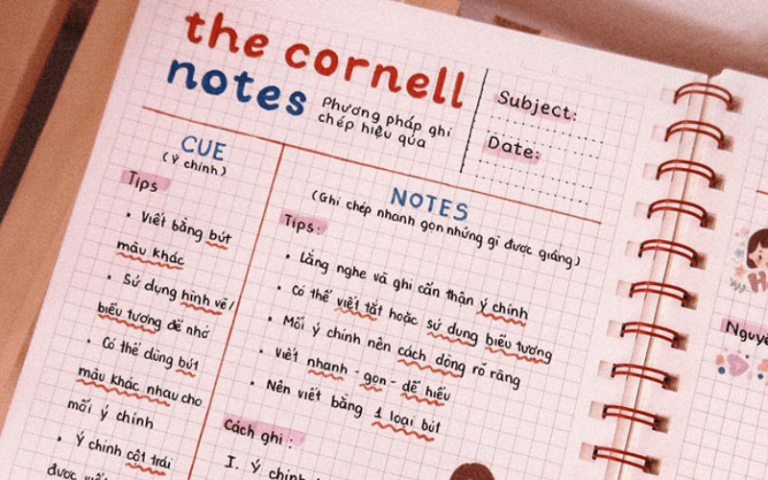 the cornell
notes
Phương pháp ghi
chép hiệu qủa
Subject:
Date:
CUE
(ý chính)
Tips
• Viết bằng bút
màu khác
• Sử dụng hình vẽ/
biểu tượng để nhớ
• Có thể dùng bút
màu khác nhau cho
mỗi ý chính
• Ý chính cột trái
được viết
NOTES
(Ghi chép nhanh gọn những gì được giảng)
Tips:
• Lắng nghe và ghi cẩn thận ý chính
• Có thể viết tắt hoặc sử dụng biểu tượng
• Mỗi ý chính nên cách dòng rõ ràng
• Viết nhanh - gọn - dễ hiểu
• Nên viết bằng 1 loại bút
Cách ghi:
I. Ý chính
Nguyê